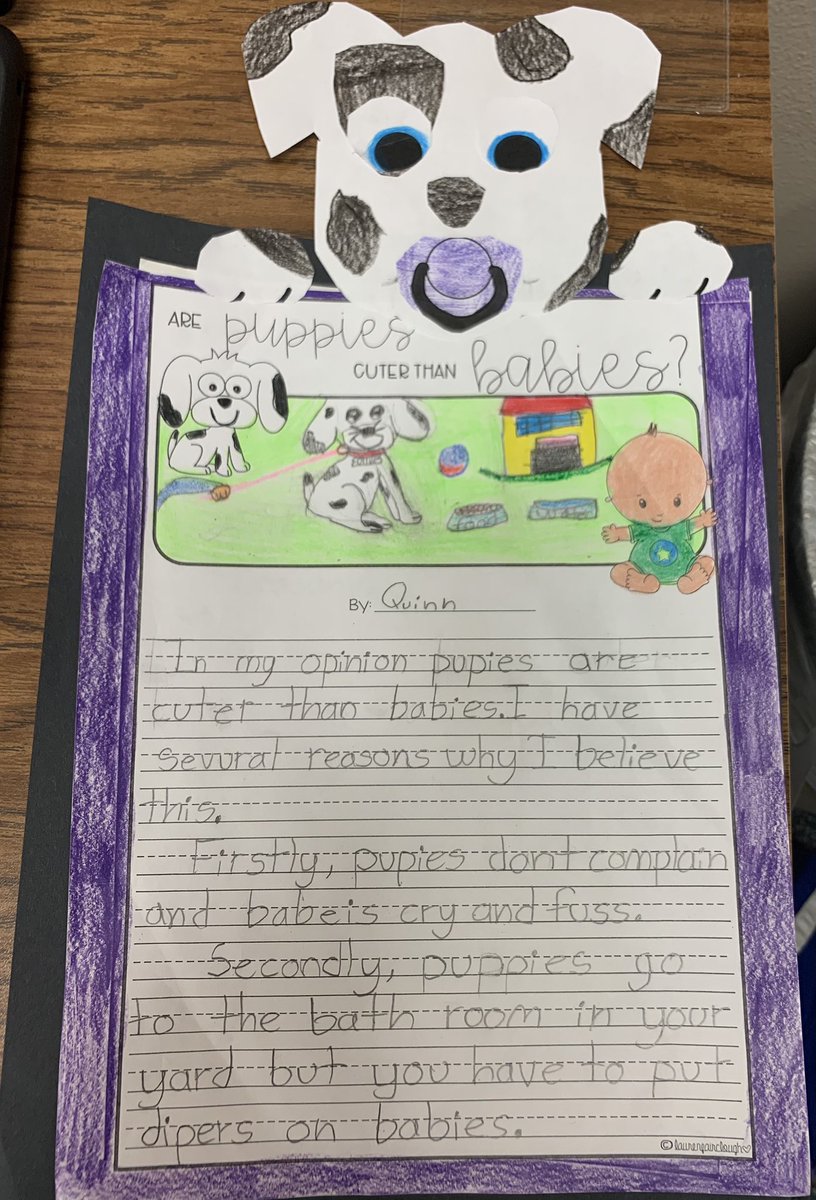 ARE puppies
CUTER THAN babies?
By: Quinn
In my opinion pupies are
cuter than babies. I have
sevural reasons why I believe
this.
Firstly, pupies dont complain
and babeis cry and fuss.
Secondly, puppies go
to the bath room in your
yard but you have to put
dipers on babies.
©laurenfairclough